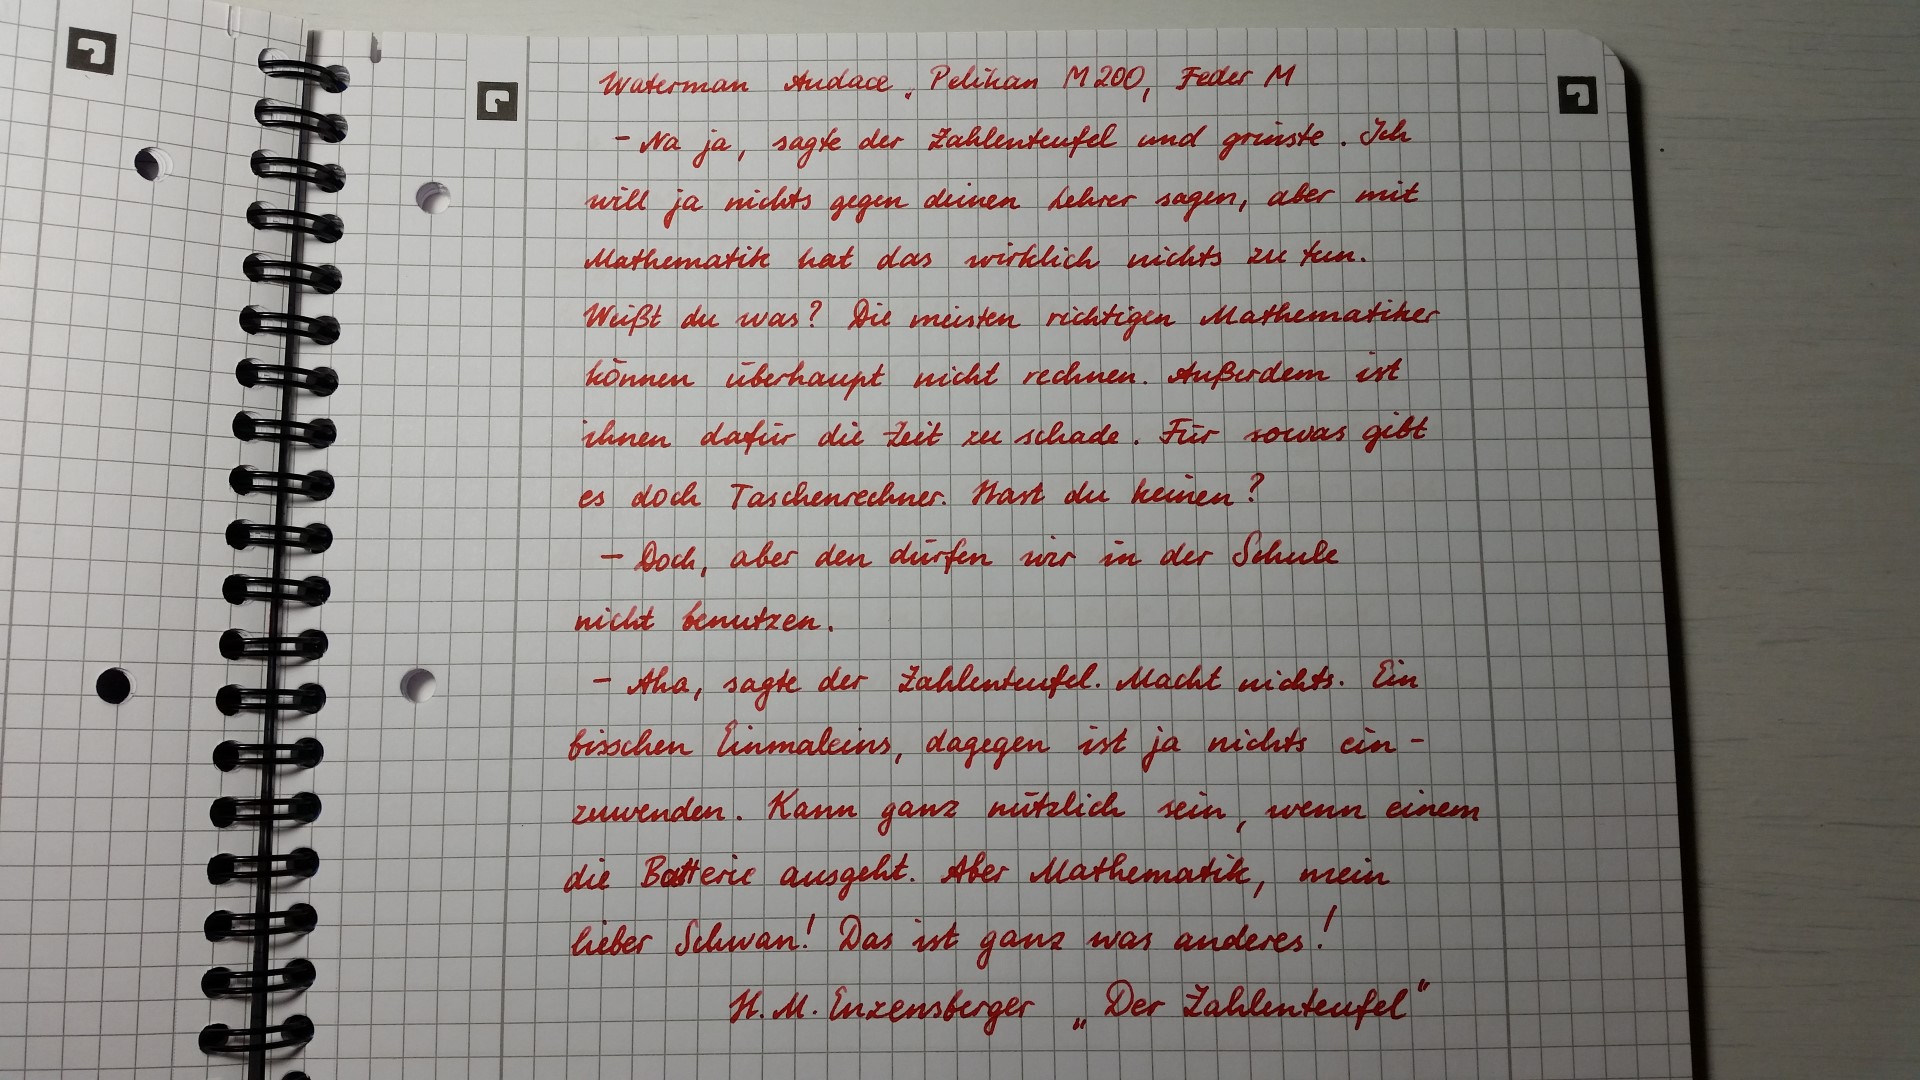 Waterman Audace, Pelikan M200, Feder M
– Na ja, sagte der Zahlenteufel und grinste. Ich
will ja nichts gegen deinen Lehrer sagen, aber mit
Mathematik hat das wirklich nichts zu tun.
Weißt du was? Die meisten richtigen Mathematiker
können überhaupt nicht rechnen. Außerdem ist
ihnen dafür die Zeit zu schade. Für sowas gibt
es doch Taschenrechner. Hast du keinen?
– Doch, aber den dürfen wir in der Schule
nicht benutzen.
– Aha, sagte der Zahlenteufel. Macht nichts. Ein
bisschen Einmaleins, dagegen ist ja nichts ein-
zuwenden. Kann ganz nützlich sein, wenn einem
die Batterie ausgeht. Aber Mathematik, mein
lieber Schwan! Das ist ganz was anderes!
H. M. Enzensberger „Der Zahlenteufel“